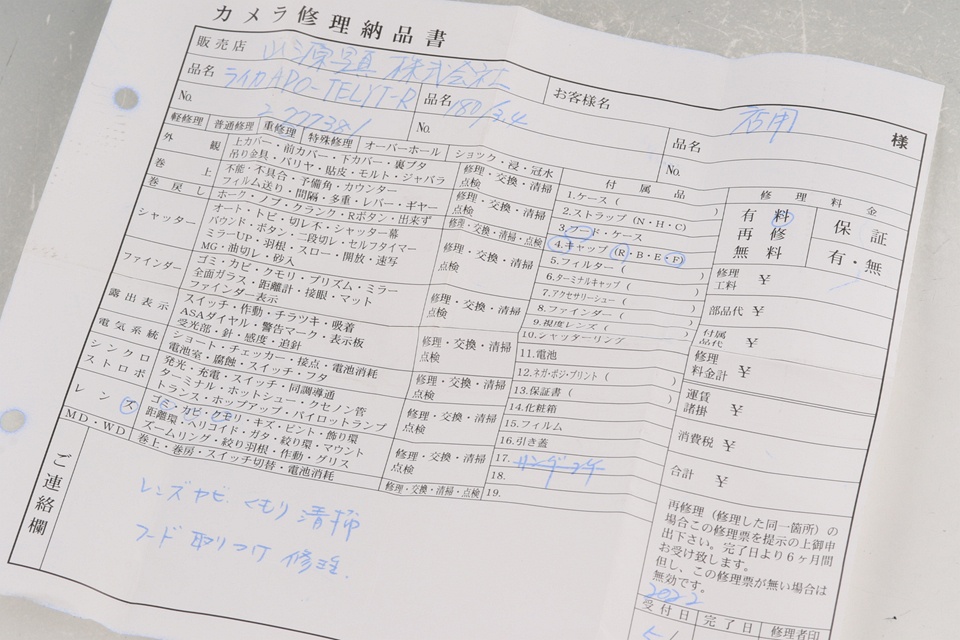 カメラ修理納品書
販売店 山源写真 株式会社
お客様名 店用 様
品名 ライカAPO-TELYT-R
品名 180/3.4
品名
No. 2777381
No.
No.
軽修理 普通修理 重修理 特殊修理 オーバーホール ショック・浸・冠水
外観
上カバー・前カバー・下カバー・裏ブタ
吊り金具・バリヤ・貼皮・モルト・ジャバラ
修理・交換・清掃
点検
巻上
不能・不具合・予備角・カウンター
フィルム送り・間隔・多重・レバー・ギヤー
修理・交換・清掃
点検
巻戻し
ホーク・ノブ・クランク・Rボタン・出来ず
修理・交換・清掃・点検
シャッター
オート・トビ・切レ不・シャッター幕
バウンド・ボタン・二段切・セルフタイマー
ミラーUP・羽根・スロー・開放・速写
MG・油切レ・砂入
修理・交換・清掃
点検
ファインダー
ゴミ・カビ・クモリ・プリズム・ミラー
全面ガラス・距離計・接眼・マット
ファインダー表示
修理・交換・清掃
点検
露出表示
スイッチ・作動・チラツキ・吸着
ASAダイヤル・警告マーク・表示板
受光部・針・感度・追針
修理・交換・清掃
点検
電気系統
ショート・チェッカー・接点・電池消耗
電池室・腐蝕・スイッチ・フタ
修理・交換・清掃
点検
シンクロ
ストロボ
発光・充電・スイッチ・同調導通
ターミナル・ホットシュー・クセノン管
トランス・ホップアップ・パイロットランプ
修理・交換・清掃
点検
レンズ
ゴミ・カビ・クモリ・キズ・ピント・飾り環
距離環・ヘリコイド・ガタ・絞り環・マウント
ズームリング・絞り羽根・作動・グリス
修理・交換・清掃
点検
MD・WD
巻上・巻房・スイッチ切替・電池消耗
修理・交換・清掃・点検
付属品
1.ケース ( )
2.ストラップ (N・H・C)
3.フード・ケース
4.キャップ (R・B・E・F)
5.フィルター ( )
6.ターミナルキャップ ( )
7.アクセサリーシュー ( )
8.ファインダー ( )
9.視度レンズ ( )
10.シャッターリング
11.電池
12.ネガ・ポジ・プリント ( )
13.保証書 ( )
14.化粧箱
15.フィルム
16.引き蓋
17.
18.
19.
修理料金
有料
再修
無料
保証
有・無
修理
工料 ¥
部品代 ¥
付属
品代 ¥
修理
料金計 ¥
運賃
諸掛 ¥
消費税 ¥
合計 ¥
再修理(修理した同一箇所)の
場合この修理票を提示の上御申
出下さい。完了日より6ヶ月間
お受け致します。
但し、この修理票が無い場合は
無効です。
2022
受付日 完了日 修理者印
5/
ご連絡欄
レンズカビ くもり 清掃
フード 取りつけ 修理.